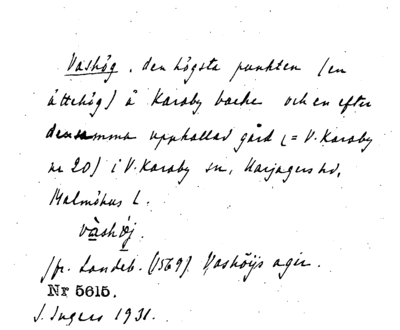 Vashög, den högsta punkten (en
ättehög) å Karaby backe och en efter
densamma uppkallad gård (= V. Karaby
nr 20) i V. Karaby sn, Harjagers hd,
Malmöhus l.
vàshö̀j.
jfr. Landeb. (1569). Vashöijs agir.
Nr 5615.
I. Ingers 1931.